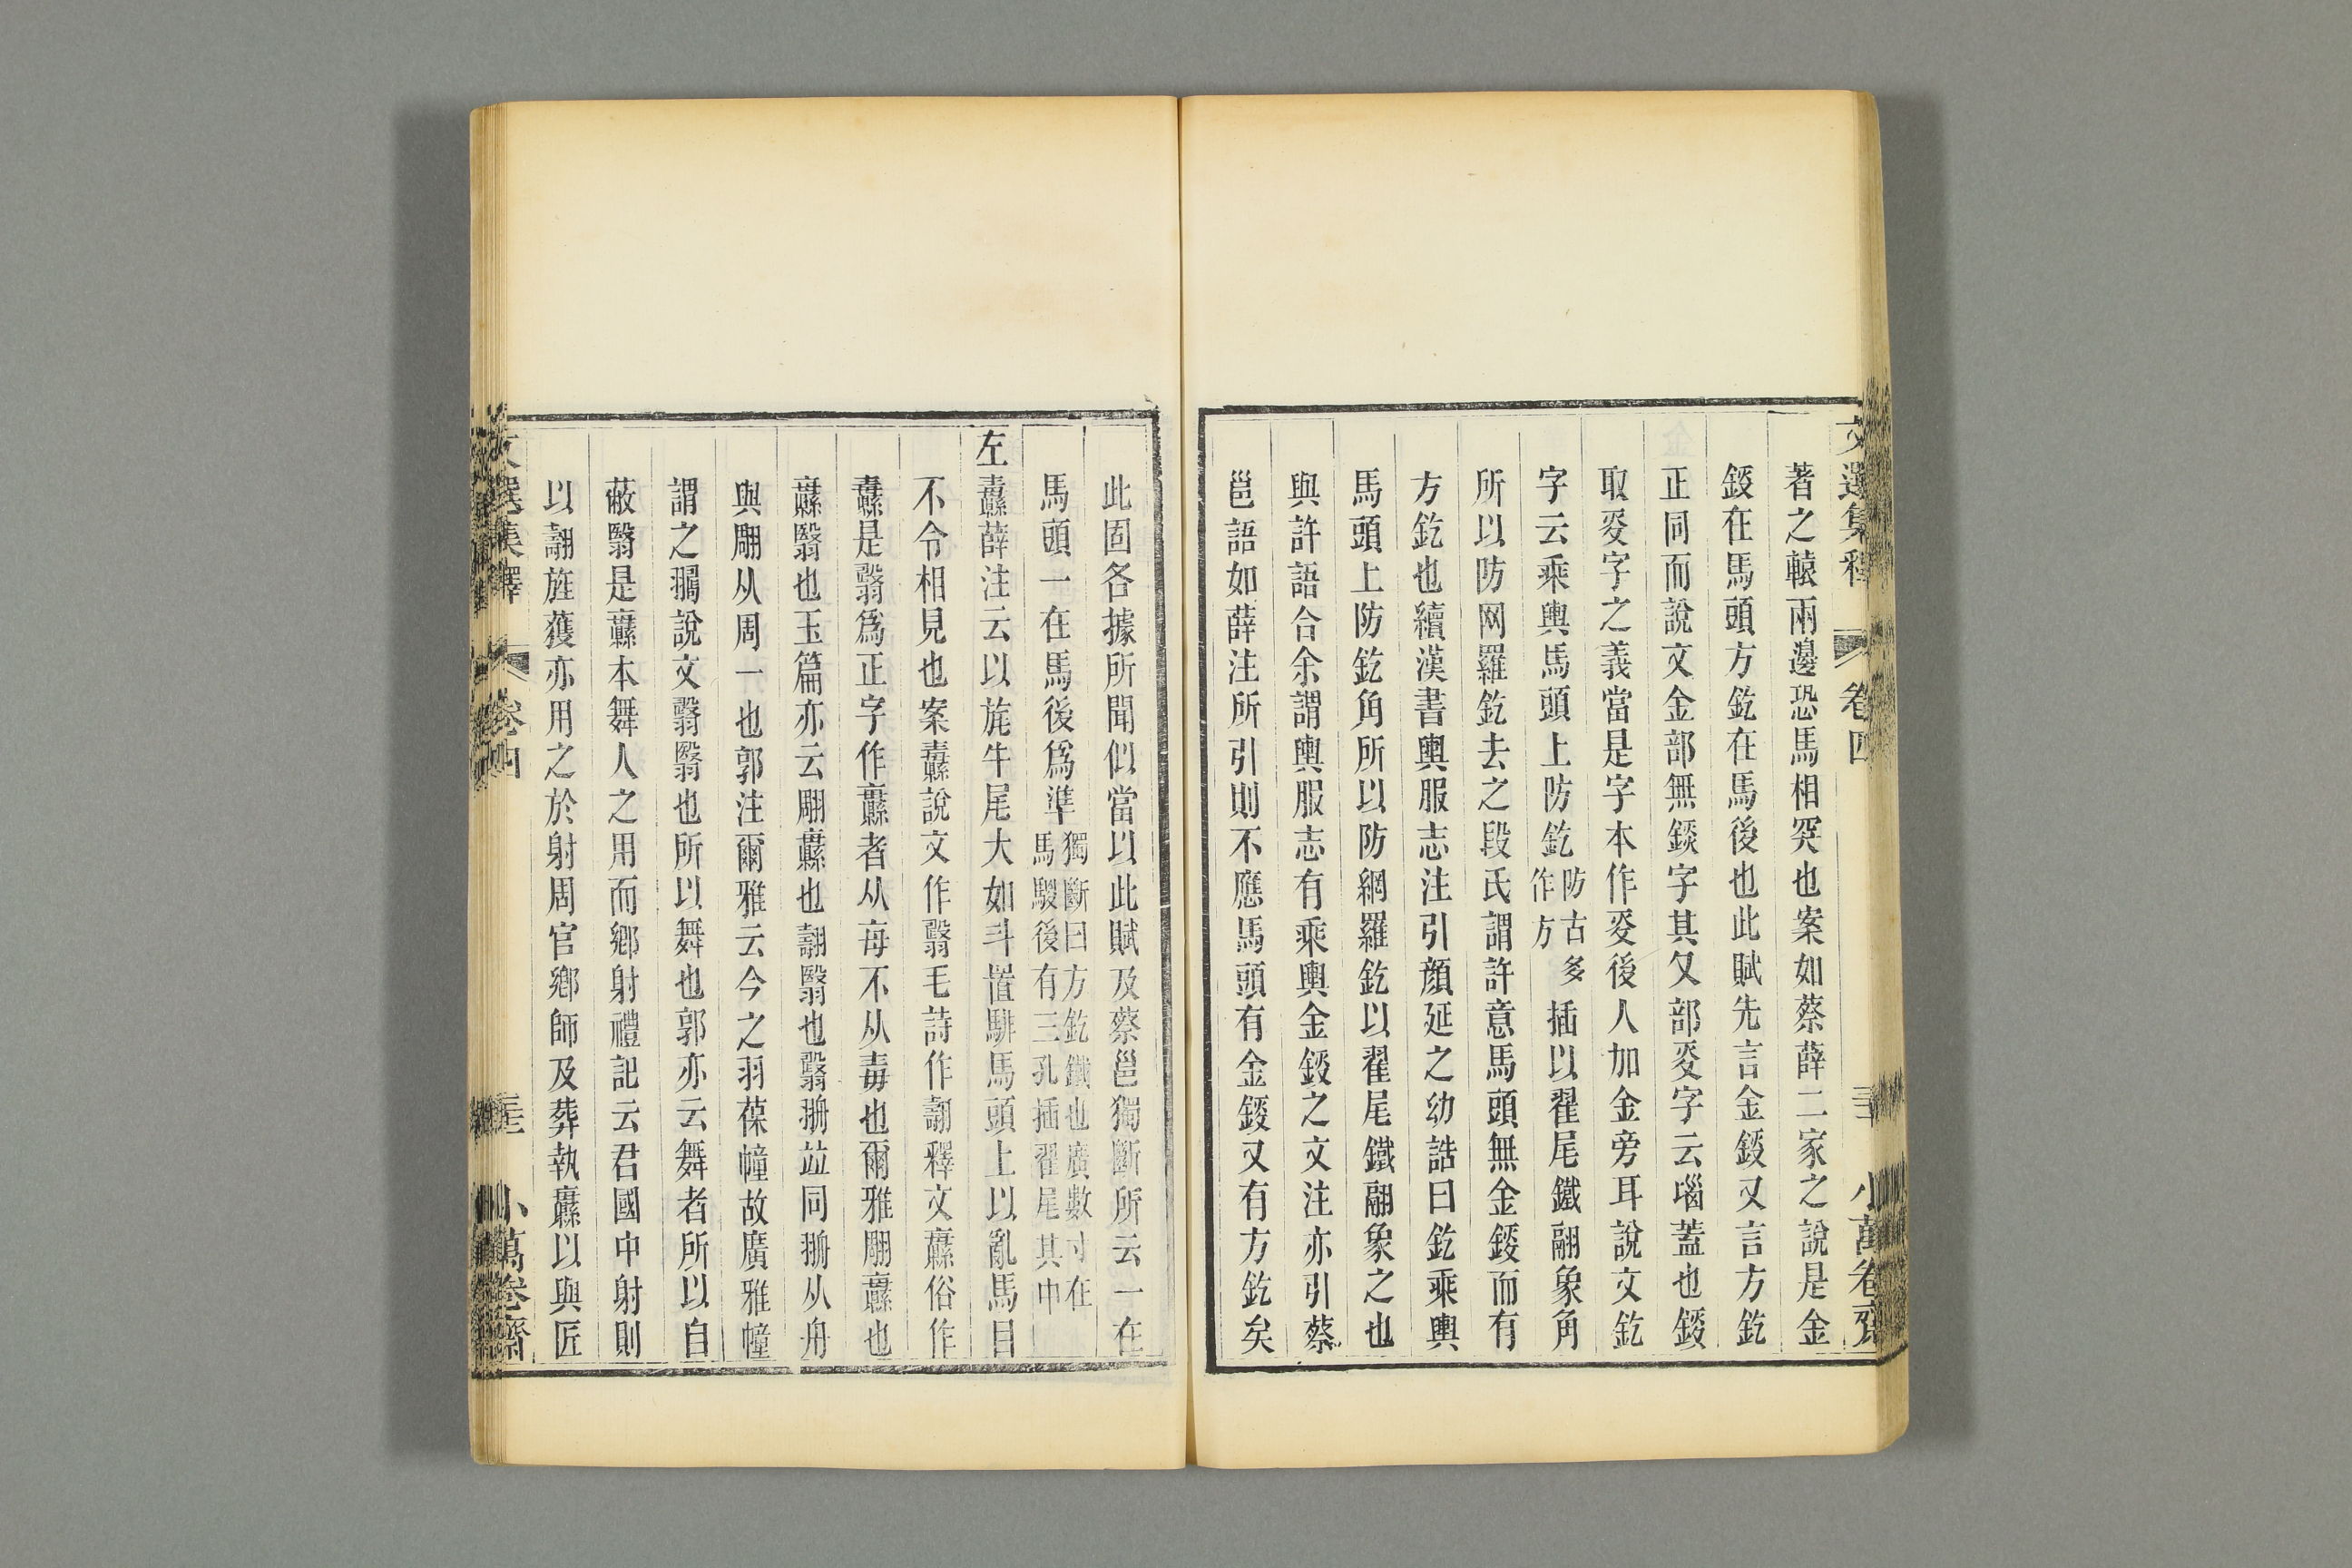 文選集釋 卷四 小萬卷齋
著之轅兩邊恐馬相突也案如蔡薛二家之說是金
鋄在馬頭方釳在馬後也此賦先言金鋄又言方釳
正同而說文金部無鋄字其夊部㚇字云㙇蓋也鋄
取㚇字之義當是字本作㚇後人加金旁耳說文釳
字云乘輿馬頭上防釳防古多作方插以翟尾鐵翮象角
所以防网羅釳去之段氏謂許意馬頭無金鋄而有
方釳也續漢書輿服志注引顏延之幼誥曰釳乘輿
馬頭上防釳角所以防網羅釳以翟尾鐵翮象之也
與許語合余謂輿服志有乘輿金鋄之文注亦引蔡
邕語如薛注所引則不應馬頭有金鋄又有方釳矣
此固各據所聞似當以此賦及蔡邕獨斷所云一在
馬頭一在馬後爲準獨斷曰方釳鐵也廣數寸在馬騣後有三孔插翟尾其中
左纛薛注云以旄牛尾大如斗置騑馬頭上以亂馬目
不令相見也案纛說文作翳毛詩作翿釋文纛俗作
纛是翳爲正字作纛者从每不从毒也爾雅翢纛也
纛翳也玉篇亦云翢纛也翿翳也翳𦨉竝同𦨉从舟
與翢从周一也郭注爾雅云今之羽葆幢故廣雅幢
謂之翿說文翳翳也所以舞也郭亦云舞者所以自
蔽翳是纛本舞人之用而鄉射禮記云君國中射則
以翿旌獲亦用之於射周官鄉師及葬執纛以與匠
文選集釋 卷四 小萬卷齋